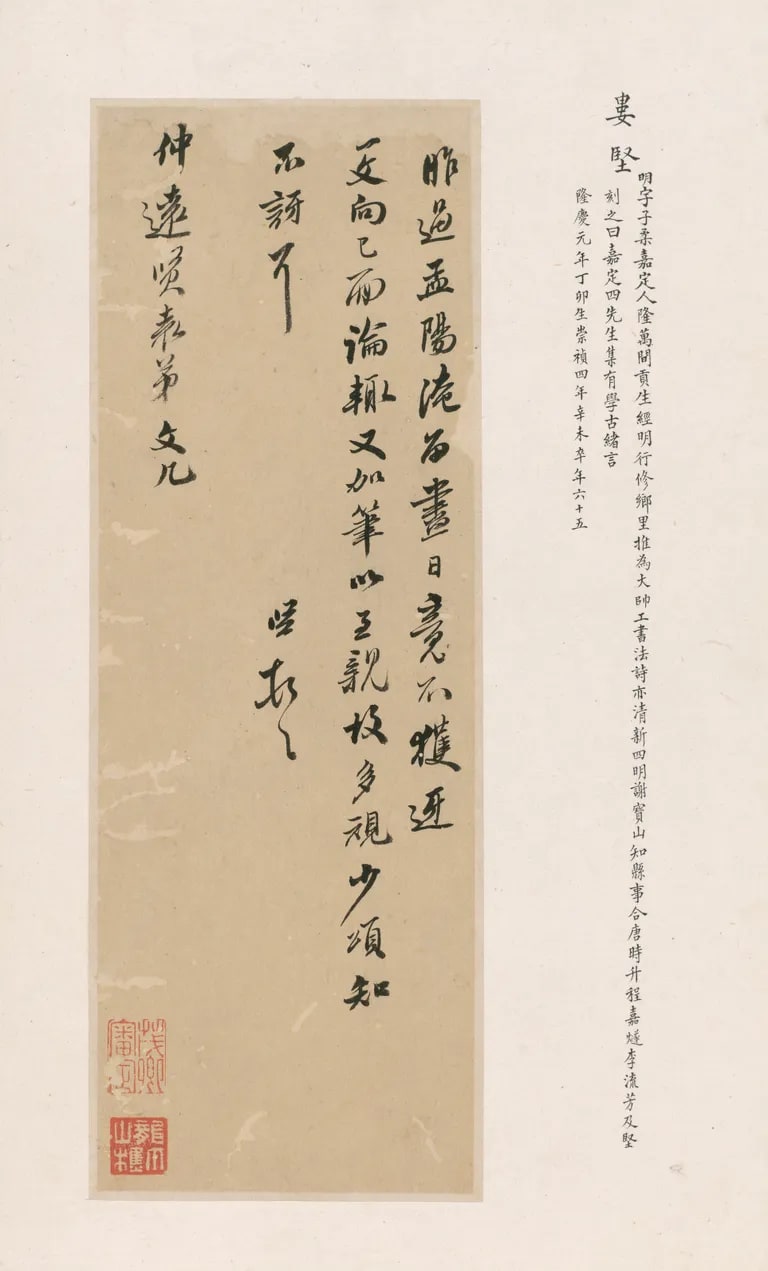 婁堅
明字子柔嘉定人隆萬間貢生經明行修鄉里推為大師工書法詩亦清新四明謝賓山知縣事合唐時升程嘉燧李流芳及堅
刻之曰嘉定四先生集有學古緒言
隆慶元年丁卯生崇禎四年辛未卒年六十五
昨過孟陽淹留盡日竟不獲迓
向已而論輙又加筆以至親故多視少頃知
不訝耳
堅頓〻
仲遠賢表弟文几
茂卿審
山樓